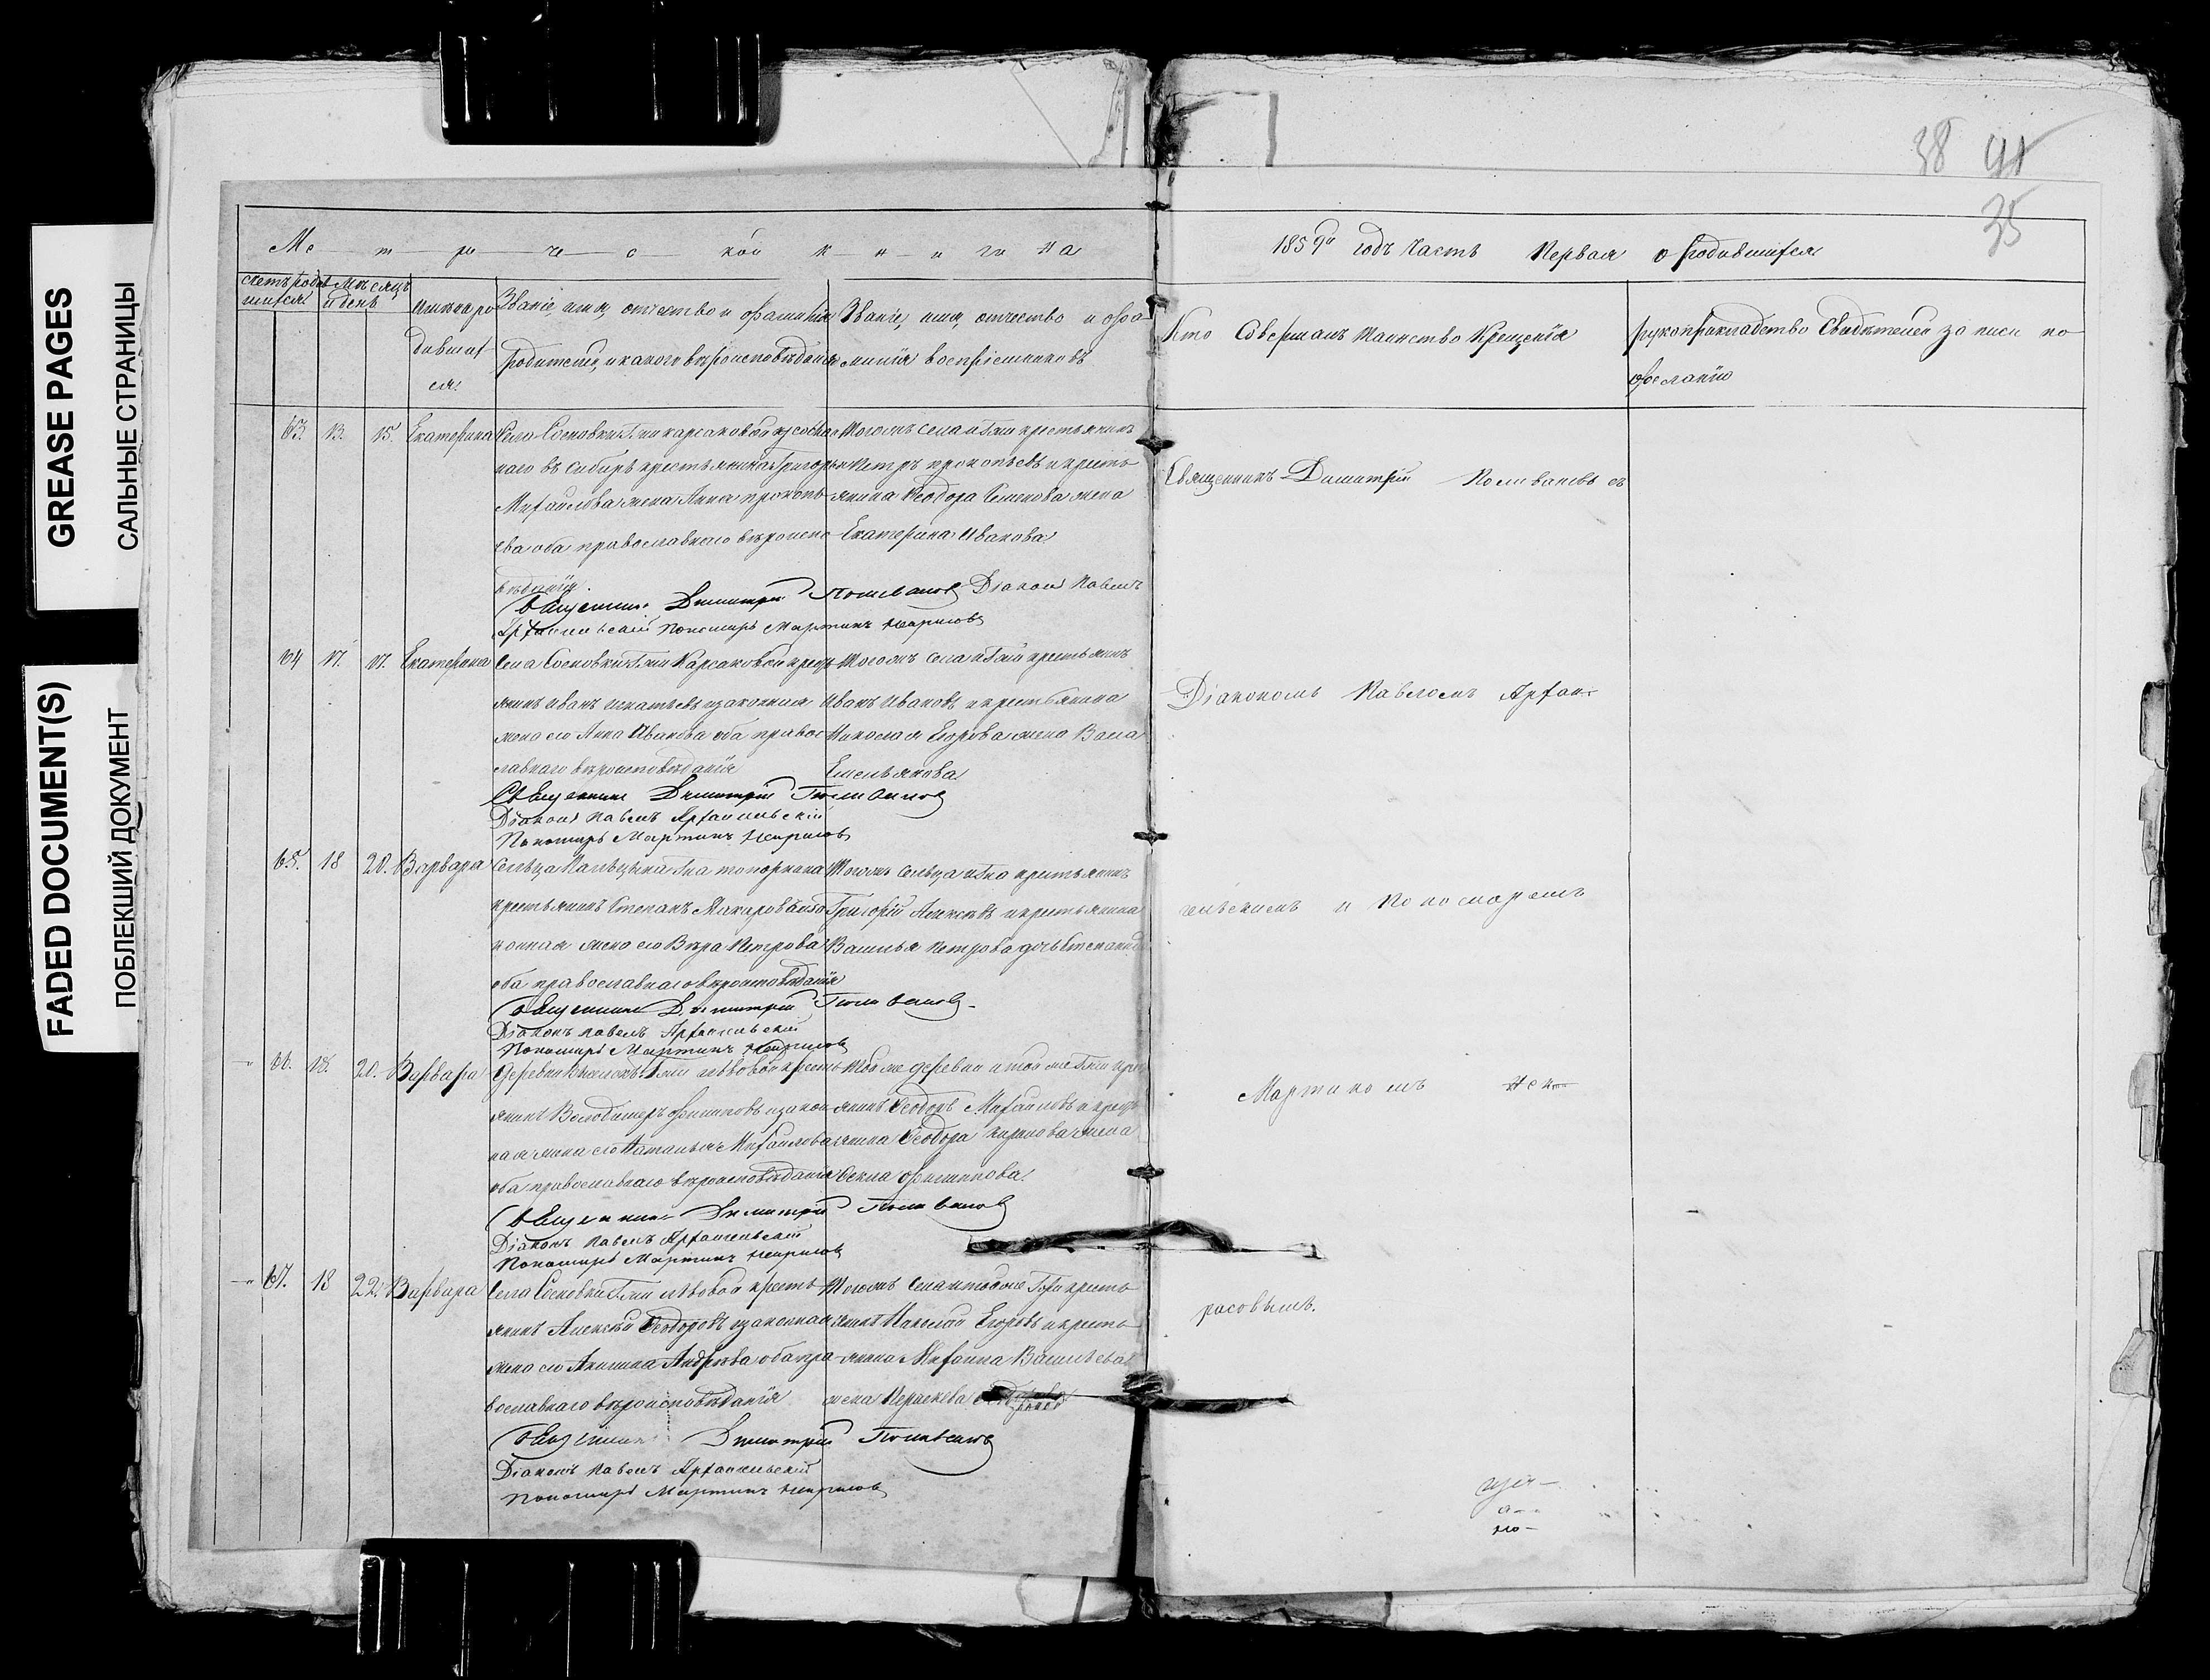 GREASE PAGES
САЛЬНЫЕ СТРАНИЦЫ
FADED DOCUMENT(S)
ПОБЛЕКШИЙ ДОКУМЕНТ
38
35
Метрической книги на
1859й годъ Часть Первая о родившихся
счетъ родив
шихся
Мѣсяцъ
и день
имена ро
дивших
ся
Званіе, имя, отчество и фамилія
родителей, и какого вѣроисповѣданія
Званіе, имя, отчество и фа
милія воспріемниковъ
Кто Совершалъ таинство Крещенія
рукоприкладство Свидѣтелей записи по
желанію
63. 13. 15. Екатерина
Села Сосновки Гжи карсаковой
наго въ сибирь крестьянина Григорья
Михайлова жена Анна прокопь
ева оба православнаго вѣроиспо
вѣданія
Тогожъ села и Гжи крестьянинъ
Петръ прокопьевъ и кресть
янина Ѳеодора Семенова жена
Екатерина Иванова
Священникъ Димитрій Поливановъ Діаконъ Павелъ
Архангельскій Пономарь Мартинъ Некрасовъ
64 17. 17. Екатерина
Села Сосновки Гжи Карсаковой крест
янинъ Иванъ Игнатьевъ и законная
жена его Анна Иванова оба право
славнаго вѣроисповѣданія
Тогожъ села и Гжи крестьянинъ
Иванъ Ивановъ и крестьянина
Николая Егорова жена
Емельянова
Священникъ Димитрій Поливановъ
Діаконъ Павелъ Архангельскій
Пономарь Мартинъ Некрасовъ
65. 18 20. Варвара
Сельца Гна топорнина
крестьянинъ Степанъ Макаровъ и за
конная жена его Вѣра Петрова
оба православнаго вѣроисповѣданія
Тогожъ сельца и Гна крестьянинъ
Григорій Алексѣевъ и крестьянина
Василья Петрова дочь Степанида
Священникъ Димитрій Поливановъ
Діаконъ Павелъ Архангельскій
Пономарь Мартинъ Некрасовъ
66. 18. 20. Варвара
Деревни Гжи львовой кресть
янинъ Володимеръ Филиповъ и закон
ная жена его Наталья Михайлова
оба православнаго вѣроисповѣданія
Той же деревни и той же Гжи крест
янинъ Ѳеодоръ Михайловъ и крест
янина Ѳеодора жена
Ѳекла Филиппова
Священникъ Димитрій Поливановъ
Діаконъ Павелъ Архангельскій
Пономарь Мартинъ Некрасовъ
67. 18 22. Варвара
Села Сосновки Гжи львовой кресть
янинъ Алексѣй Ѳеодоровъ и законная
жена его Акилина Андреева оба пра
вославнаго вѣроисповѣданія
Тогожъ села и тойже Гжи кресть
янинъ Николай Егоровъ и кресть
янина Михаила Васильева
жена
Священникъ Димитрій Поливановъ
Діаконъ Павелъ Архангельскій
Пономарь Мартинъ Некрасовъ
Священникъ Димитрій Поливановъ съ
Діакономъ ПавломъАрхан-
гельскимъ и Пономаремъ
Мартиномъ Нек-
расовымъ.